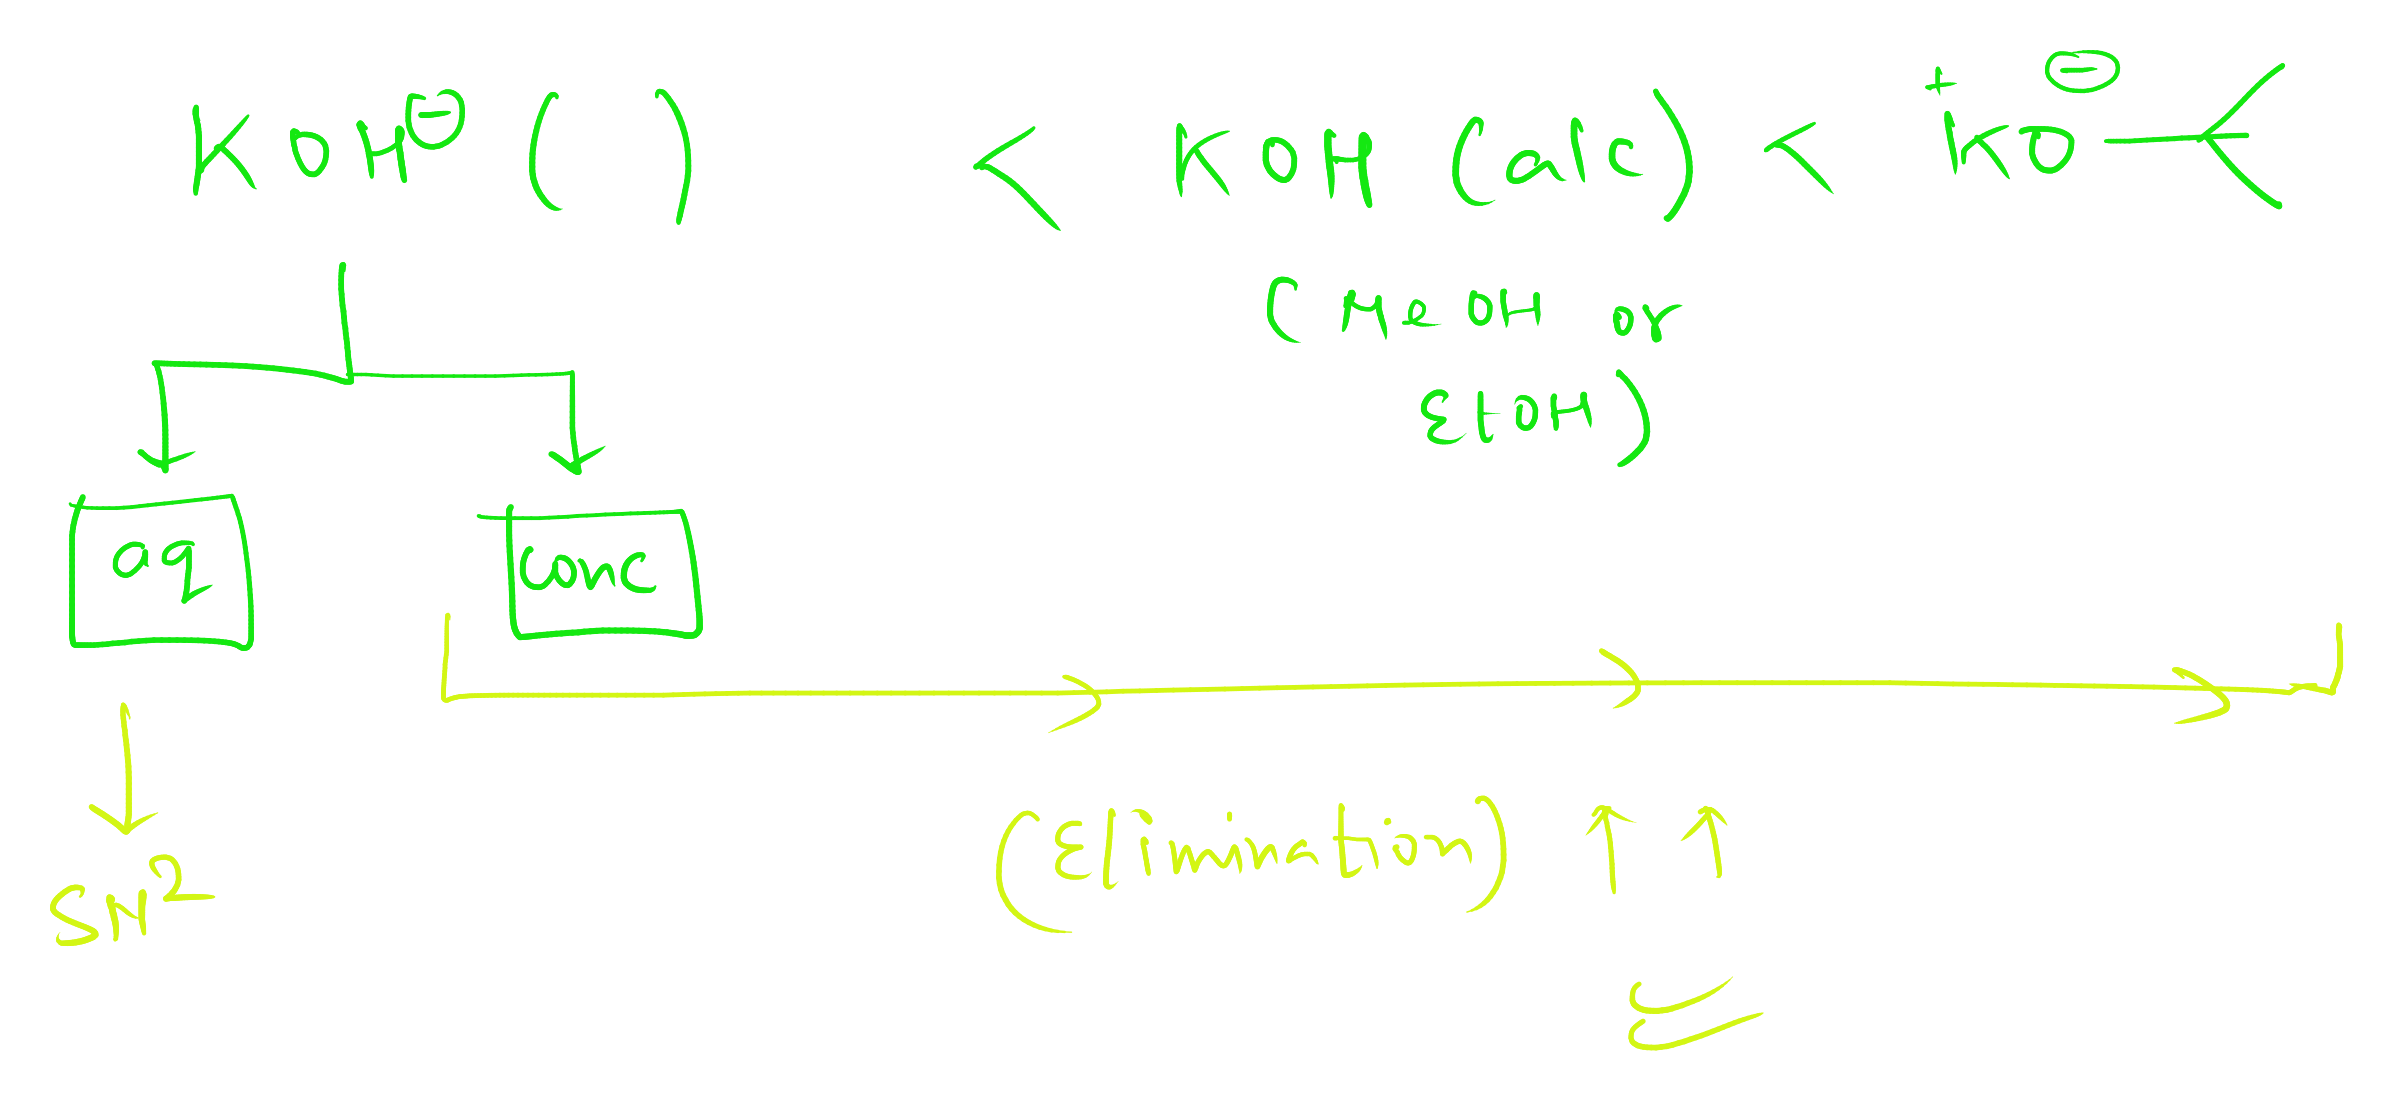 KOH⊖ ( ) < KOH (alc) < ⁺KO⊖
(MeOH or
EtOH)
aq conc
SN²
(Elimination) ↑ ↑